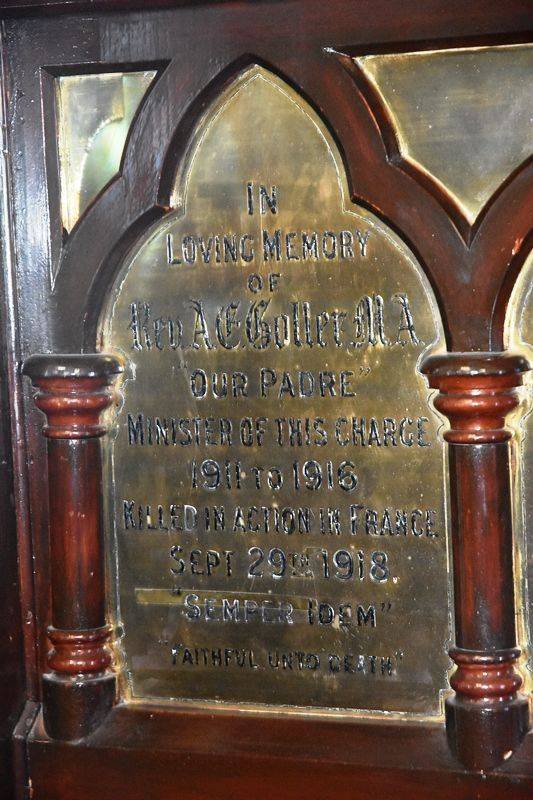 IN
LOVING MEMORY
OF
Rev. A E Goller. M.A.
"OUR PADRE"
MINISTER OF THIS CHARGE
1911 TO 1916
KILLED IN ACTION IN FRANCE
SEPT 29TH 1918.
"SEMPER IDEM"
"FAITHFUL UNTO DEATH"